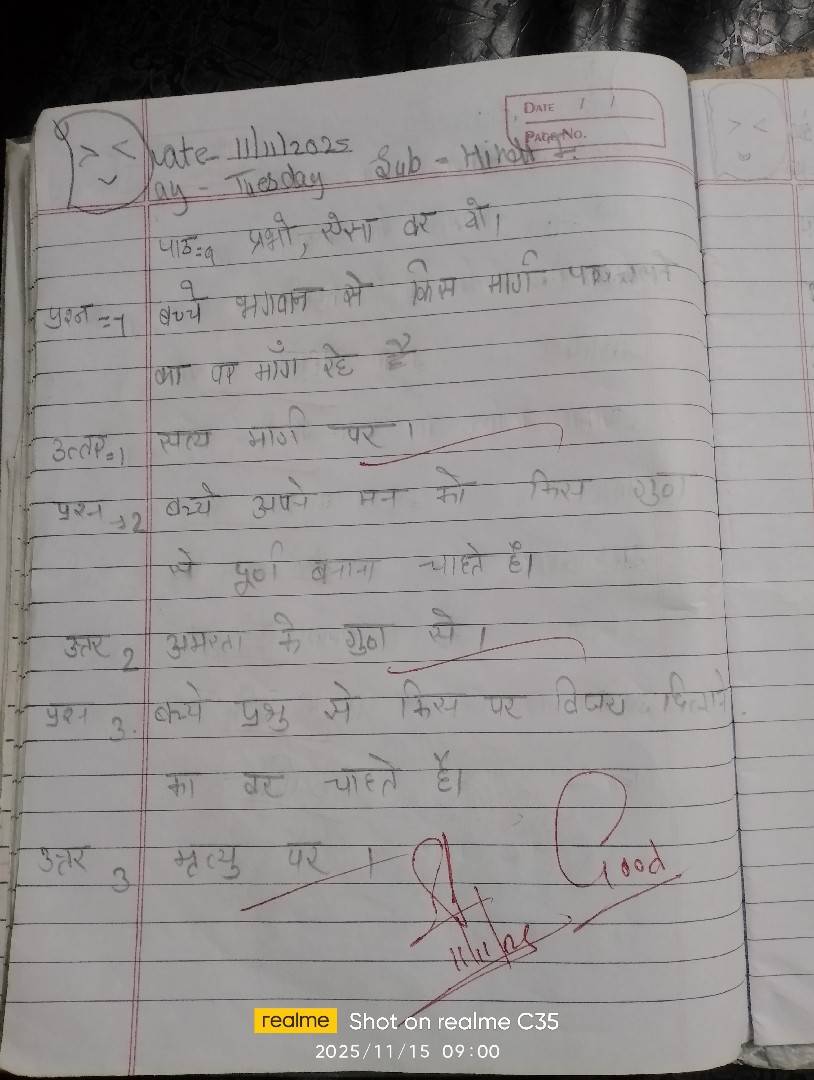 DATE / /
PAGE NO.
Date- 11/11/2025
Day - Tuesday Sub - Hindi
पाठ=१ प्रभो, ऐसा वर दो।
प्रश्न=1 बच्चे भगवान से किस मार्ग पर
का वर माँग रहे है
उत्तर=1 सत्य मार्ग पर।
प्रश्न→2 बच्चे अपने मन को किस गुण
से पूर्ण बनाना चाहते है।
उत्तर 2 अमरता के गुण से।
प्रश्न 3. बच्चे प्रभु से किस पर विजय दिलाने
का वर चाहते है।
उत्तर 3 मृत्यु पर।
Good
11/11/25
realme Shot on realme C35
2025/11/15 09:00